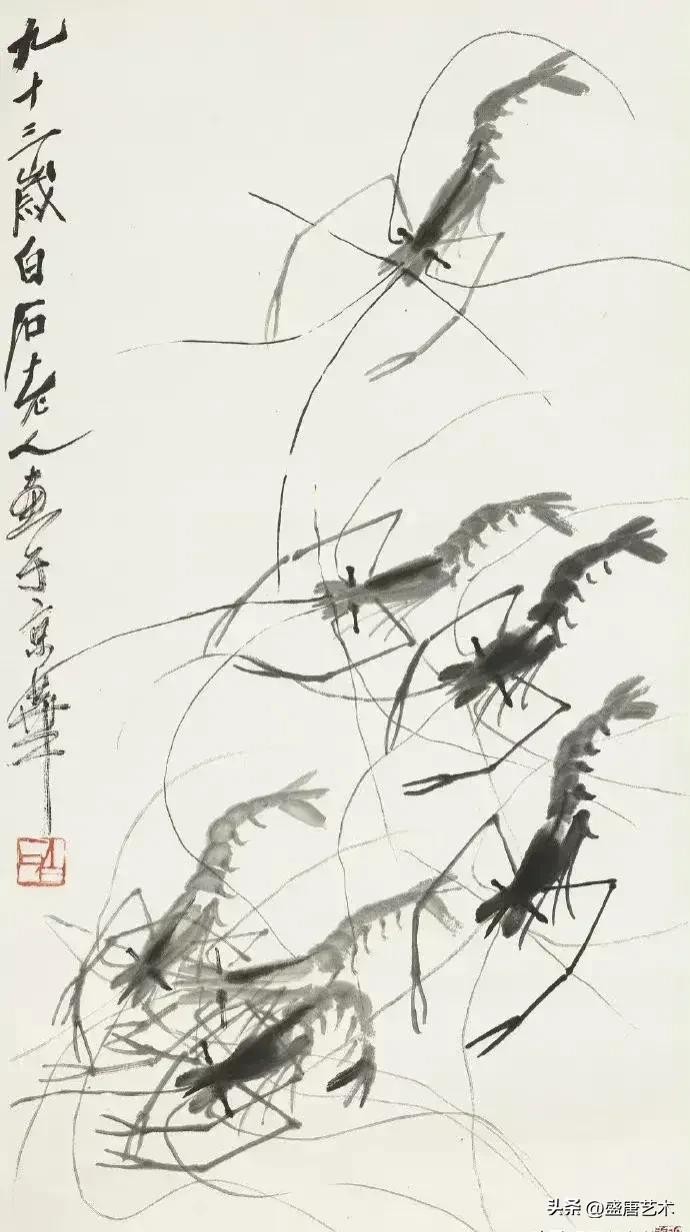 九十三歲白石老人畫于京華
白石
头条 @盛唐艺术